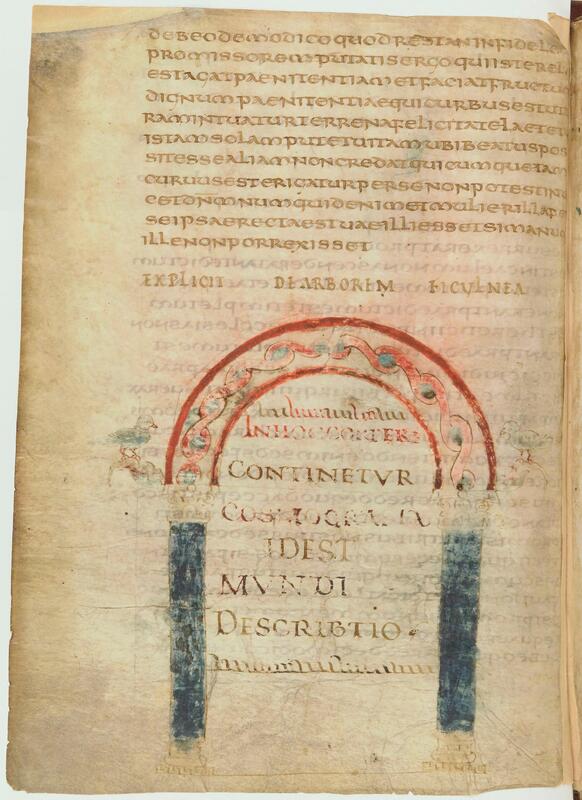 DEBEODEMODICOQUODRESTANINFIDELEM
PROMISSOREMPUTATISERGOQUIISTERELI
ESTAGATPAENITENTIAMETFACIATFRUCTUM
DIGNUMPAENITENTIAEQUICURBUSESTUT
RAMINTUATURTERRENAFELICITATELAETET
ISTAMSOLAMPUTETUITAMUBIBEATUSPOS
SITESSEALIAMNONCREDATQUICUMQUETAM
CURUUSESTERIGATURPERSENONPOTESTINU
CETDNMNUMQUIDENIMETMULIERILLAPE
SEIPSAERECTAESTUAEILLIESSETSIMANU
ILLENONPORREXISSET
EXPLICIT DEARBOREM FICULNEA
INHOCCORPERE
CONTINETVR
COSMOGRAFIA
IDEST
MVNDI
DESCRIBTIO